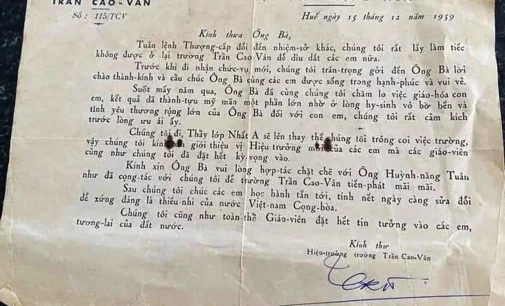 TRẦN CAO-VÂN
Số : 115/TCV
Huế ngày 15 tháng 12 năm 1959
Kính thưa Ông Bà,
Tuân lệnh Thượng-cấp đổi đến nhiệm-sở khác, chúng tôi rất lấy làm tiếc
không được ở lại trường Trần Cao-Vân để dìu dắt các em nữa.
Trước khi đi nhận chức-vụ mới, chúng tôi trân-trọng gởi đến Ông Bà lời
chào thành-kính và cầu chúc Ông Bà cùng các em được sống trong hạnh-phúc và vui vẻ.
Suốt mấy năm qua, Ông Bà đã cùng chúng tôi chăm lo việc giáo-hóa con
em, kết quả đã thành-tựu mỹ mãn một phần lớn nhờ ở lòng hy-sinh vô bờ bến và
tình yêu thương rộng lớn của Ông Bà đối với con em, chúng tôi rất cảm kích
trước lòng ưu ái ấy.
Chúng tôi đi, Thầy lớp Nhất A sẽ lên thay thế chúng tôi trông coi việc trường,
vậy chúng tôi giới thiệu vị Hiệu trưởng của các em mà các giáo-viên
cũng như chúng tôi đã đặt hết kỳ vọng vào.
Kính xin Ông Bà vui lòng hợp-tác chặt chẽ với Ông Huỳnh-năng Tuân
như đã cộng-tác với chúng tôi để trường Trần Cao-Vân tiến-phát mãi mãi.
Sau chúng tôi chúc các em học hành tấn tới, tính nết ngày càng sửa đổi
để xứng đáng là thiếu-nhi của nước Việt-nam Cọng-hòa.
Chúng tôi cũng như toàn-thể Giáo-viên đặt hết tin tưởng vào các em,
tương-lai của đất nước.
Kính thư
Hiệu-trưởng trường Trần Cao-Vân